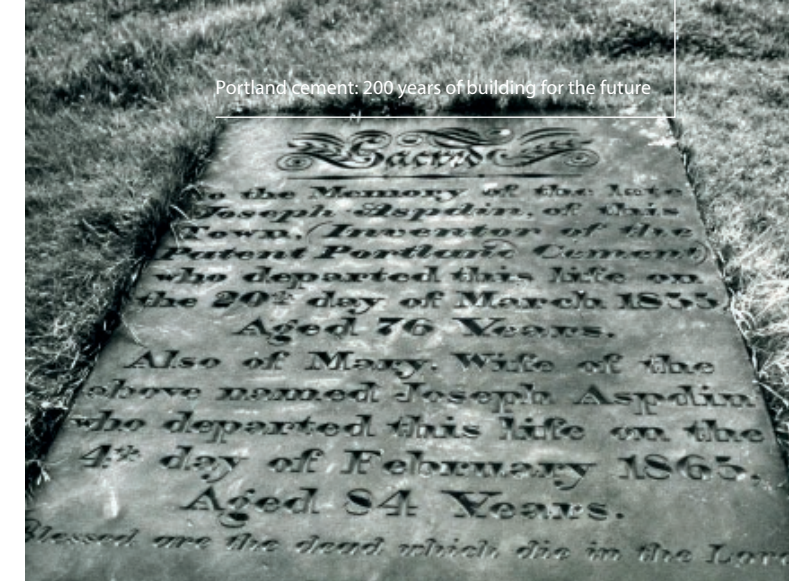 Portland cement: 200 years of building for the future
Sacred
to the Memory of the late
Joseph Aspdin, of this
Town, (Inventor of the
Patent Portland Cement)
who departed this life on
the 20th day of March 1855
Aged 76 Years.
Also of Mary, Wife of the
above named Joseph Aspdin
who departed this life on the
4th day of February 1865.
Aged 84 Years.
Blessed are the dead which die in the Lord